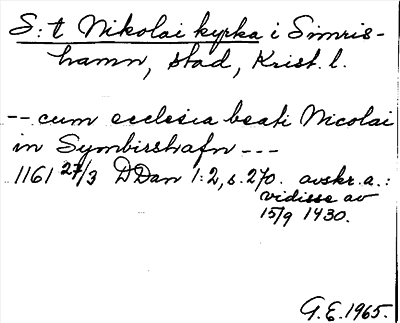 S:t Nikolai kyrka i Simris-
hamn, stad, Krist. l.
-- cum ecclesia beati Nicolai
in Symbirshafn ---
1161 27/3 DDan 1:2, s. 270. avskr. a.:
vidisse av
15/9 1430.
G.E. 1965.